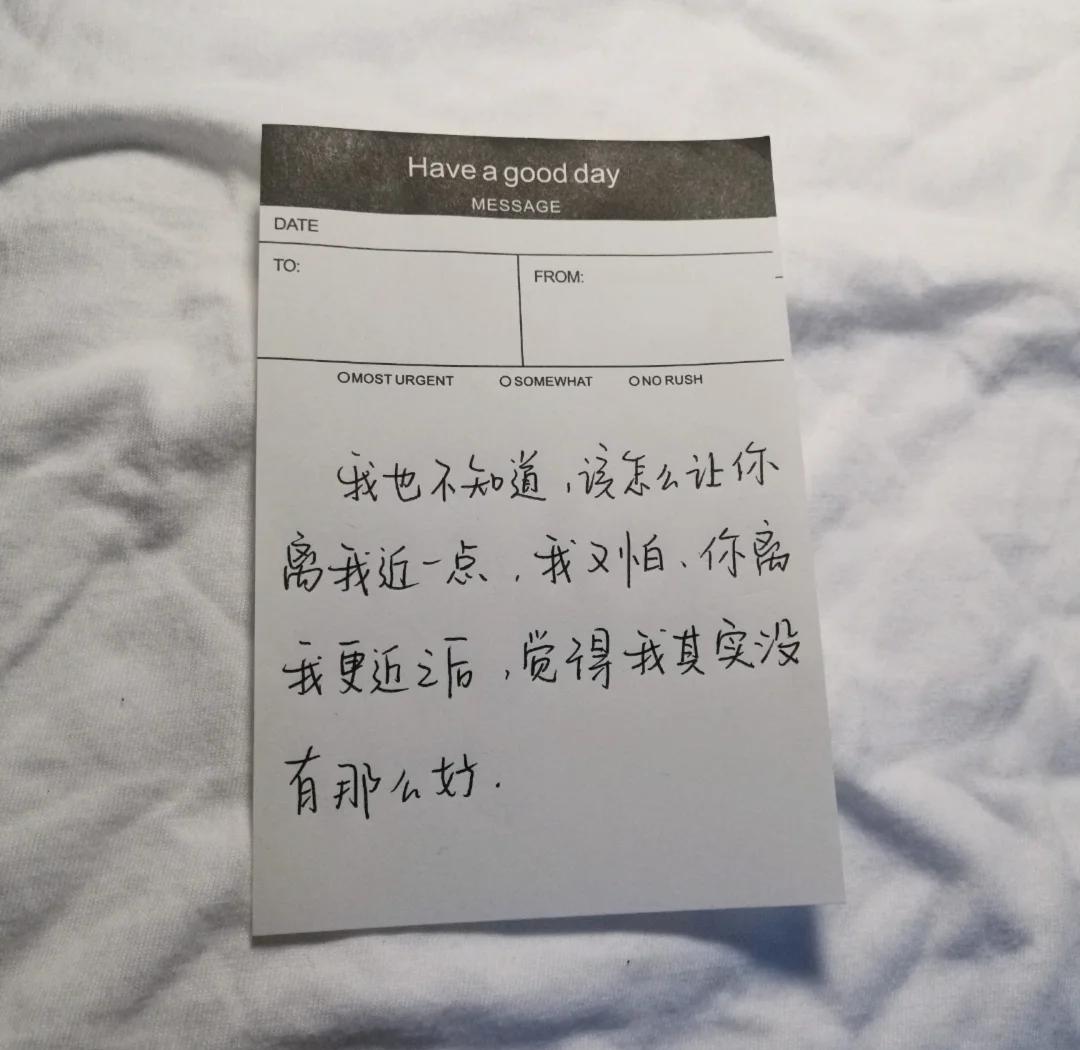 Have a good day
MESSAGE
DATE
TO:
FROM:
MOST URGENT SOMEWHAT NO RUSH
我也不知道，该怎么让你
离我近一点，我又怕、你离
我更近之后，觉得我其实没
有那么好.